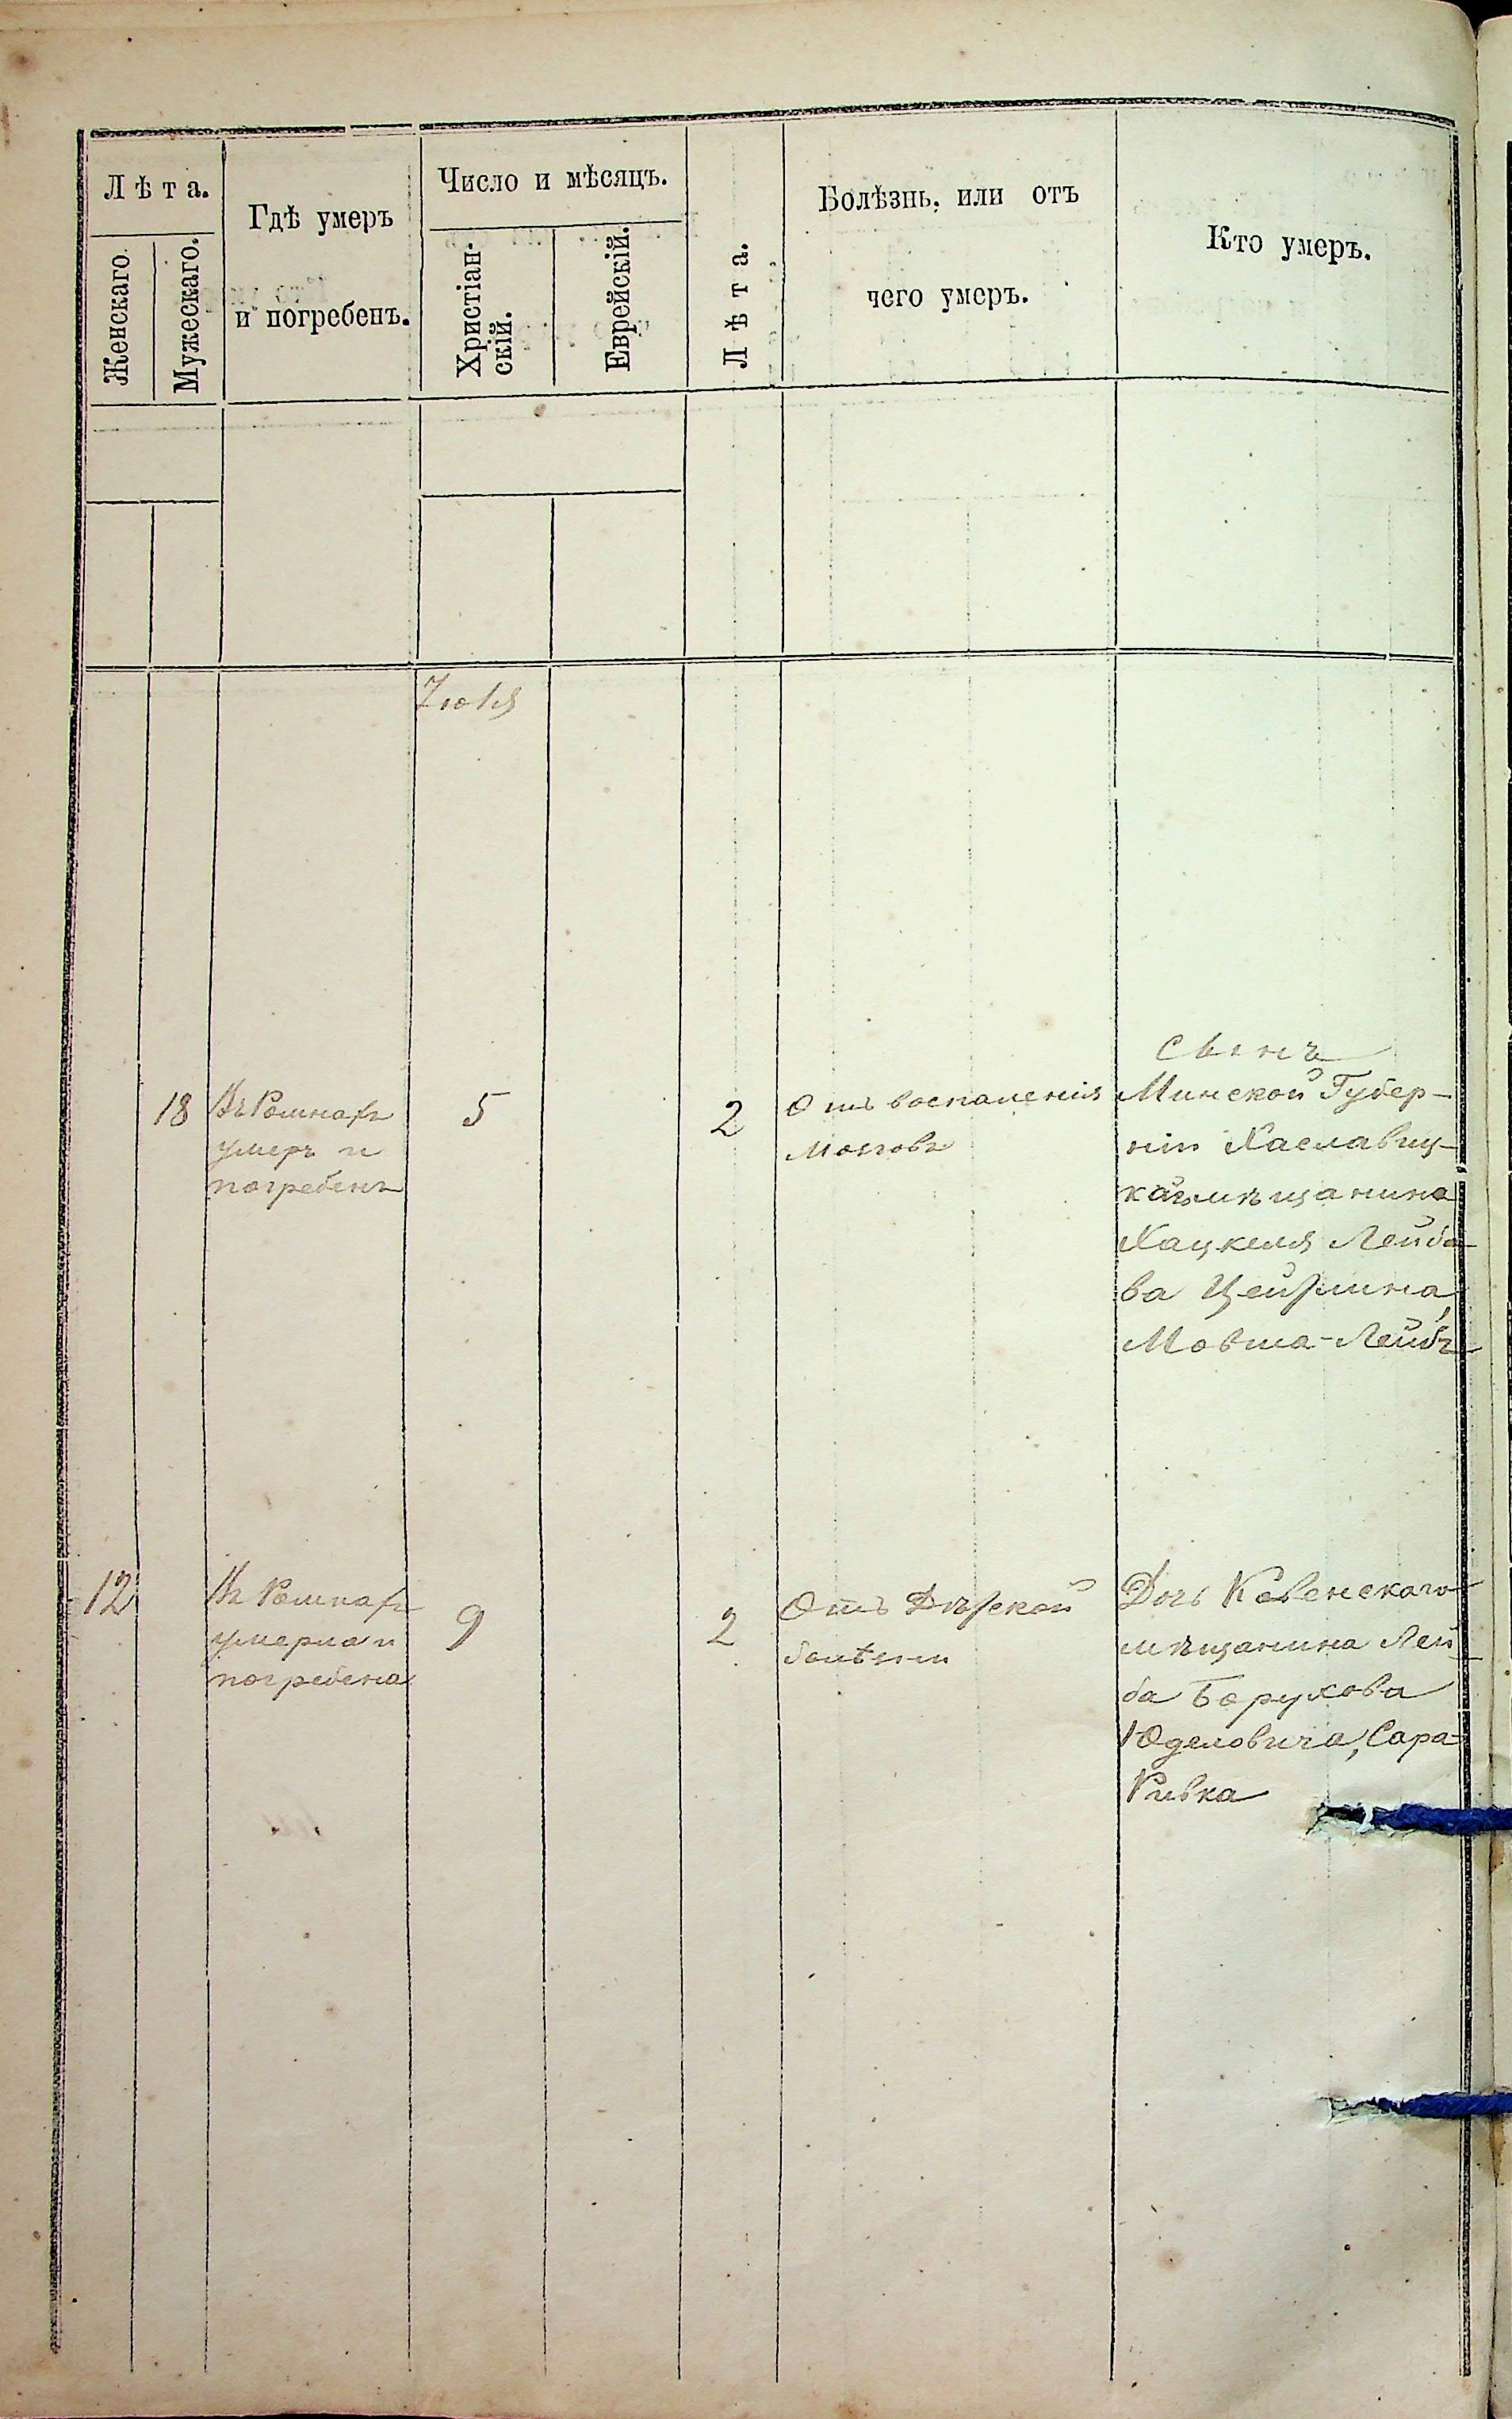 Лѣта.
Женскаго
Мужескаго.
Гдѣ умеръ
и погребенъ.
Число и мѣсяцъ.
Христіан-
скій.
Еврейскій.
Лѣта.
Болѣзнь, или отъ
чего умеръ.
Кто умеръ.
Іюля
18
Въ Ромнахъ
умеръ и
погребенъ
5
2
Отъ воспаленія
мозговъ
Сынъ
Минской Губер-
ніи Хаславиц-
каго мѣщанина
Хацкеля Лейбо-
ва Цейтлина,
Мовша-Лейбъ
12
Въ Ромнахъ
умерла и
погребена
9
2
Отъ Дѣтской
болѣзни
Дочь Ковенскаго
мѣщанина Лей-
ба Борухова
Юделовича, Сара-
Ривка